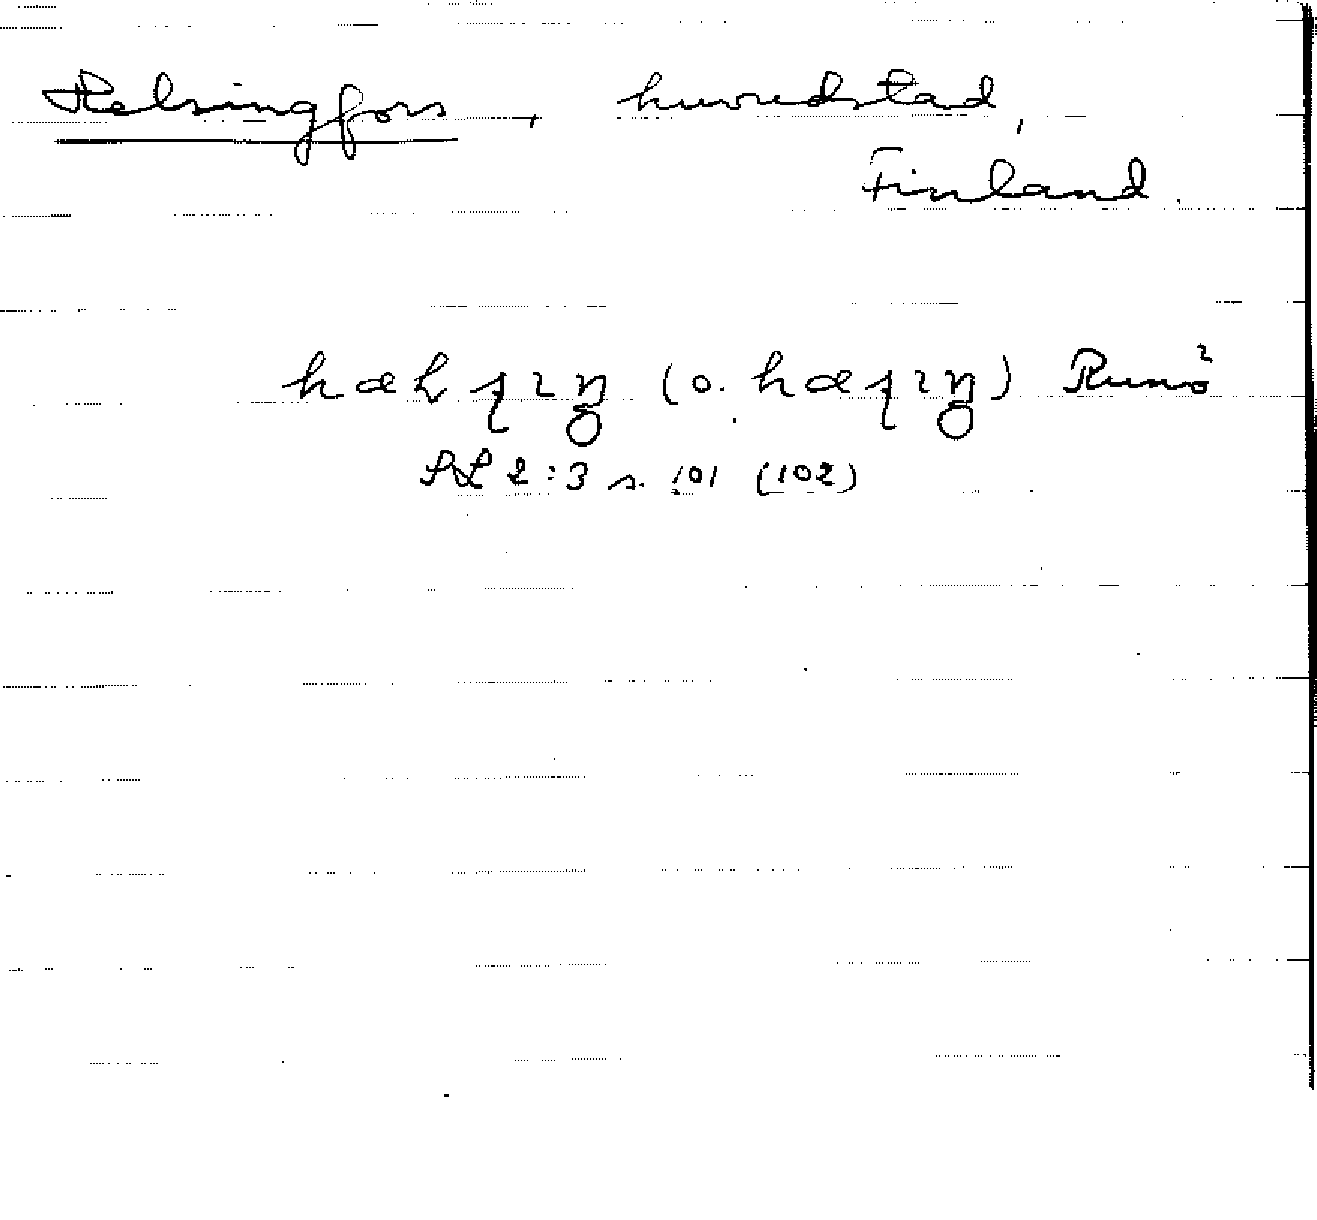 Helsingfors, huvudstad,
Finland.
(o. Runö
SL 2:3 s. 101 (102)